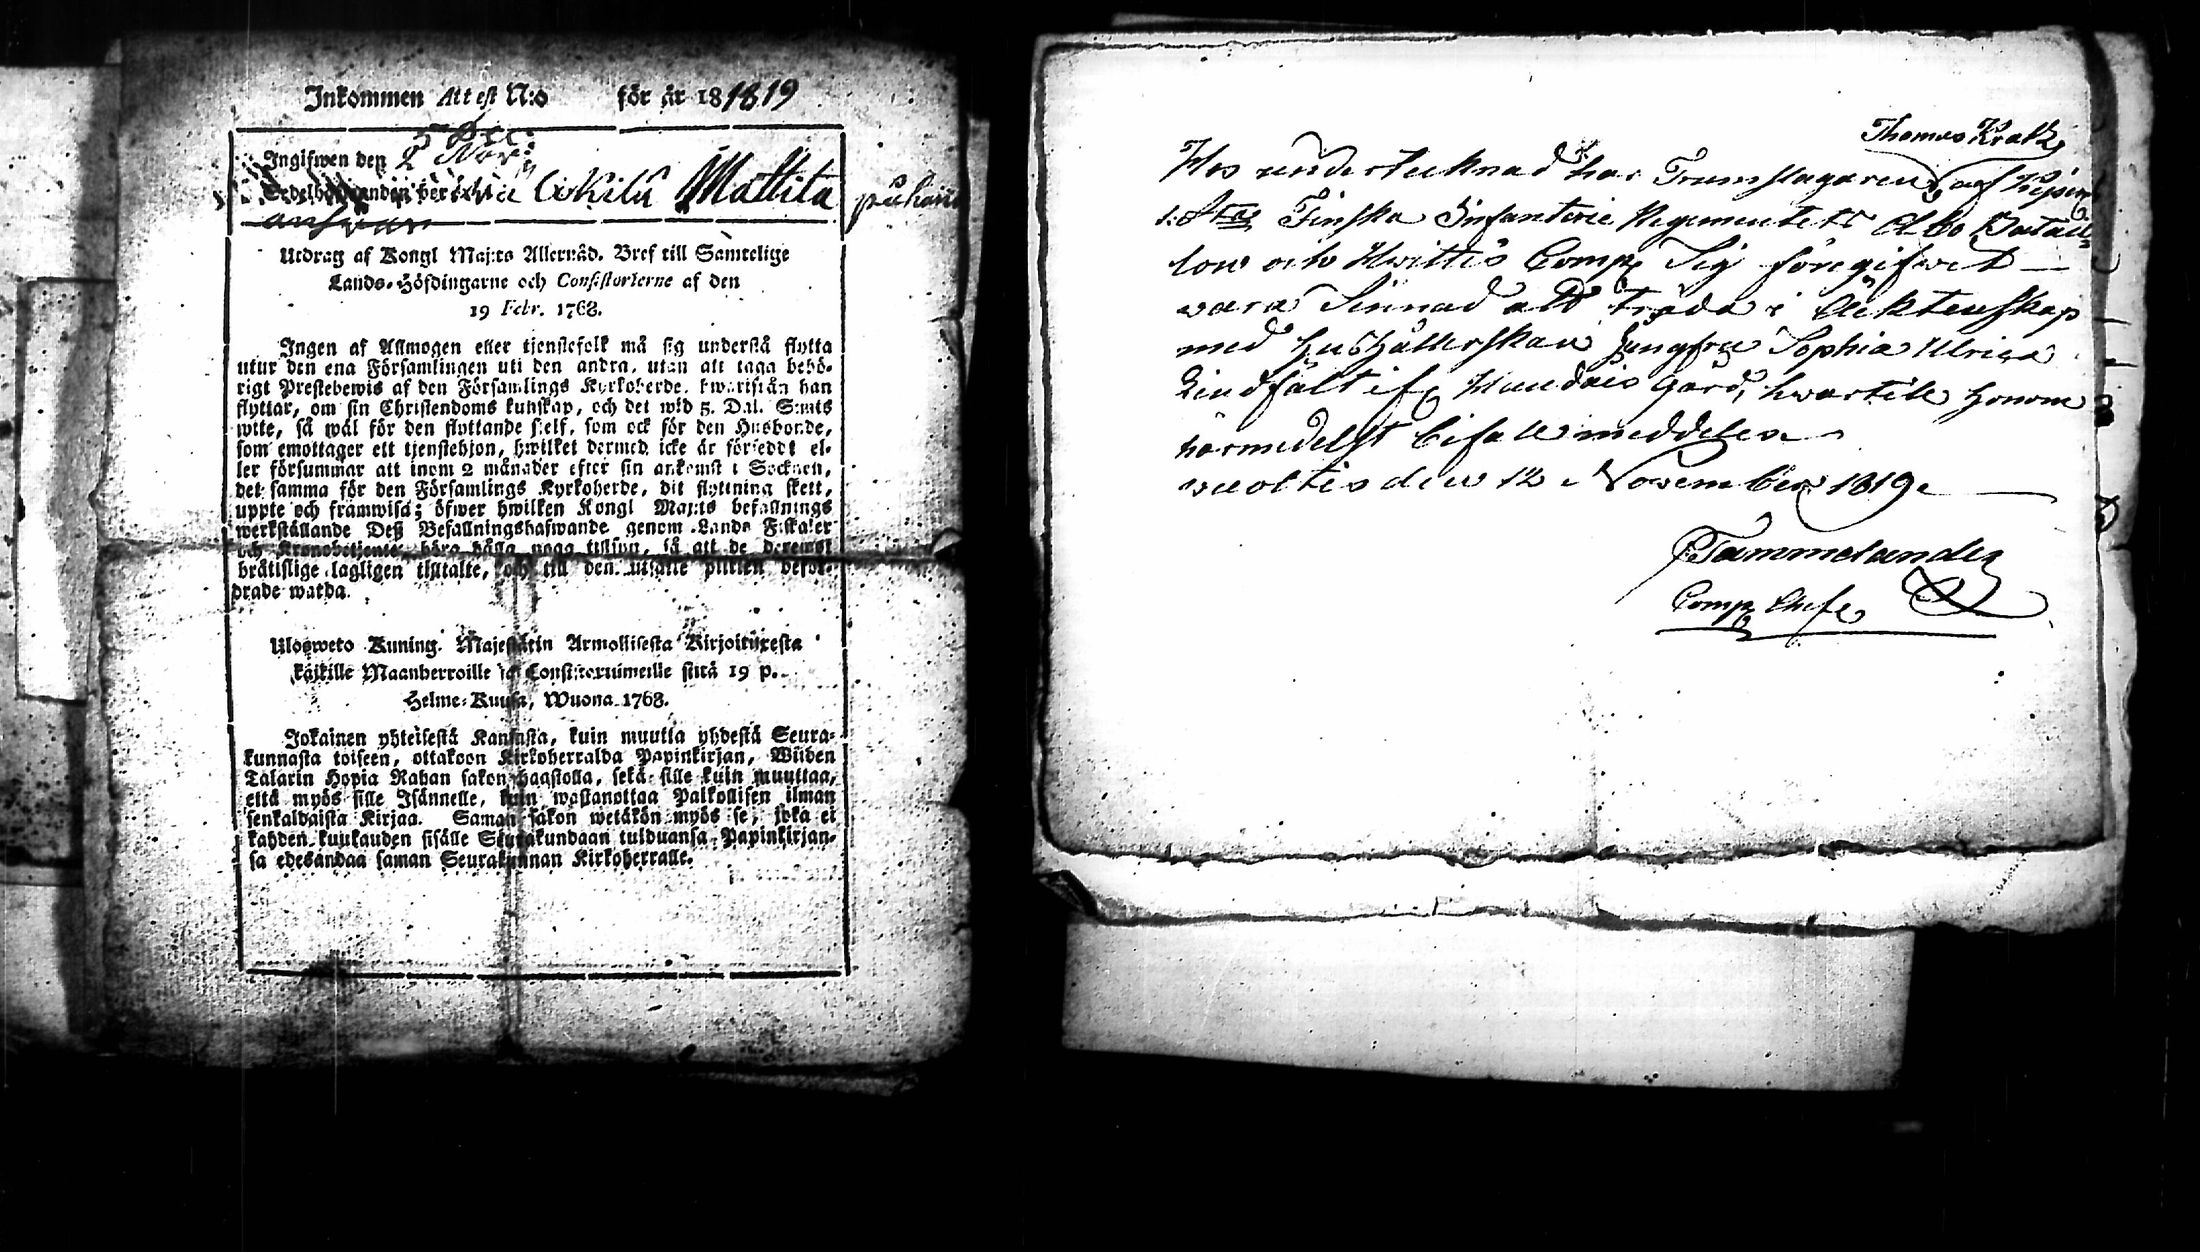 Inkommen Attest N:o för år 181819
5 Dec:
Ingifwen den 2 Nov:
Cokila Mattila på hans
answar
Utdrag af Kongl Maj:ts Allernåd. Bref till Samtelige
Lands-Höfdingarne och Consistorierne af den
19 Febr. 1768.
Ingen af Allmogen eller tjenstefolk må sig understå flytta
utur den ena Församlingen uti den andra, utan att taga behö-
rigt Prestebewis af den Församlings Kyrkoherde, hwarifrån han
flyttar, om sin Christendoms kunskap, och det wid 5. Dal. S:mts
wite, så wäl för den flyttande sjelf, som ock för den Husbonde,
som emottager ett tjenstehjon, hwilket dermed icke är förseddt el-
ler försummar att inom 2 månader efter sin ankomst i Socknen,
det samma för den Församlings Kyrkoherde, dit flyttning skett,
uppte och framwisa; öfwer hwilken Kongl Maj:ts befallnings
werkställande Deß Befallningshafwande genom Lands Fiskaler
och Kronobetjente böra hålla noga tillsyn, så att de deremot
bråtslige lagligen tilltalte, och till den utsatte plikten befor-
drade warda.
Ulosweto Kuning. Majestätin Armollisesta Kirjoituxesta
kaikille Maanherroille ja Consistoriumeille siitä 19 p.
Helme-Kuusa, Wuona 1768.
Jokainen yhteisestä Kansasta, kuin muutta yhdestä Seura-
kunnasta toiseen, ottakoon Kirkoherralda Papinkirjan, Wiiden
Talarin Hopia Rahan sakon haastolla, sekä sille kuin muuttaa,
että myös sille Isännelle, kuin wastanottaa Palkollisen ilman
senkaldaista Kirjaa. Saman sakon wetäkön myös se, joka ei
kahden kuukauden sisälle Seurakundaan tulduansa Papinkirjan-
sa edesandaa saman Seurakunnan Kirkoherralle.
Thomas Kratz
Hos undertecknad har Trumslagaren af
1:sta Finska Infanterie Regementets Åbo Batail-
lon och Hvittis Comp: Sig föregifwet
wara Sinnad att träda i Äcktenskap
med Hushållerskan Jungfru Sophia Ulrica
Lindfält ifr: Hundais Gård, hwartill Honom
härmedelst bifall meddelas
den 12 November 1819.
Tammelander
Comp: Chefe